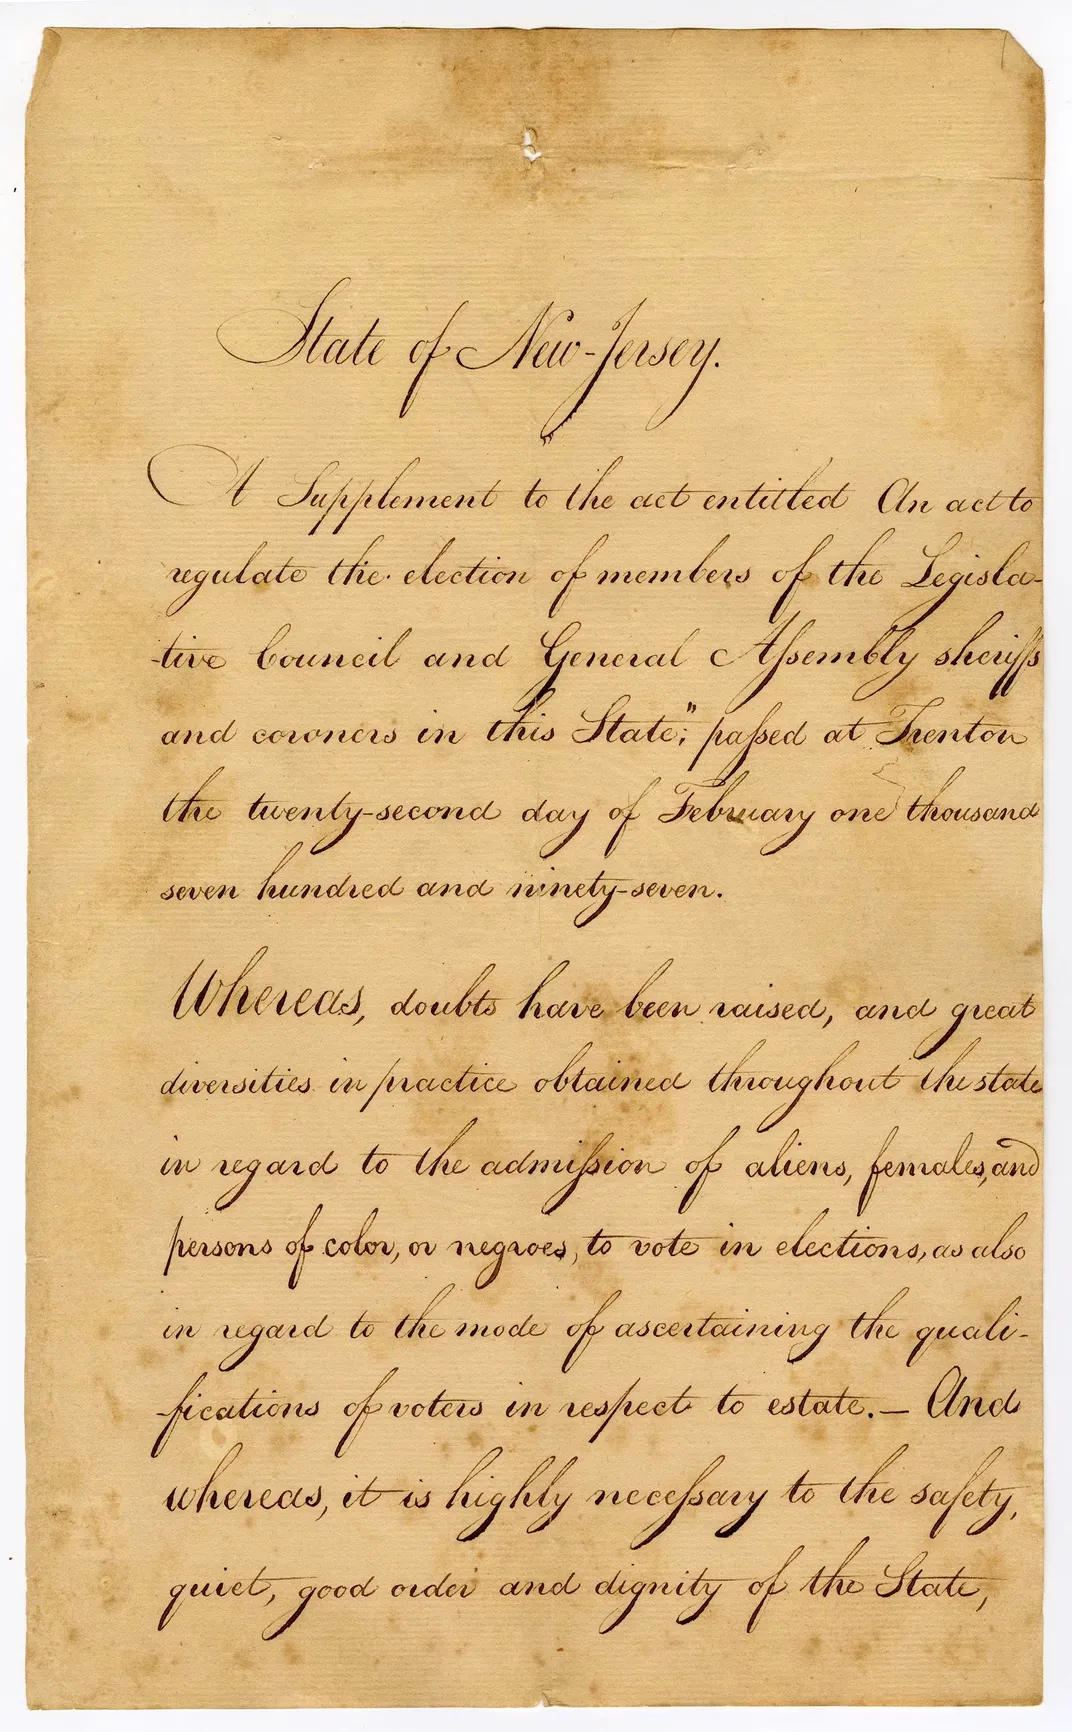 State of New-Jersey.
A Supplement to the act entitled "An act to
regulate the election of members of the Legisla-
-tive Council and General Assembly sheriffs
and coroners in this State"; passed at Trenton
the twenty-second day of February one thousand
seven hundred and ninety-seven.
Whereas, doubts have been raised, and great
diversities in practice obtained throughout the state
in regard to the admission of aliens, females, and
persons of color, or negroes, to vote in elections, as also
in regard to the mode of ascertaining the quali-
-fications of voters in respect to estate. — And
whereas, it is highly necessary to the safety,
quiet, good order and dignity of the State,